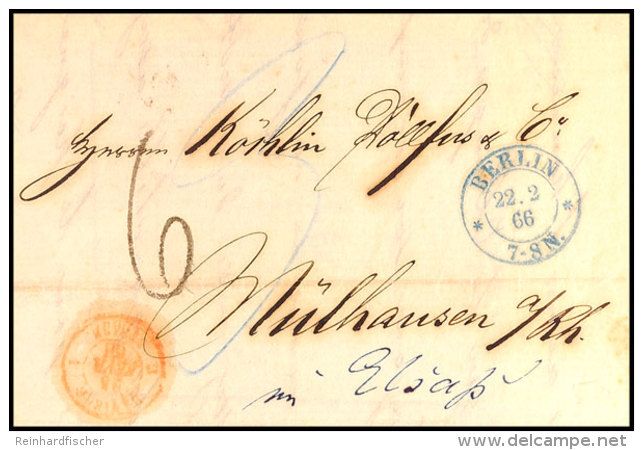 Herren Köchlin Dollfus & Co
6
BERLIN
22. 2
66
7-8 N.
Mülhausen a/Rh.
im Elsaß
Reinhardfischer
delcampe.net